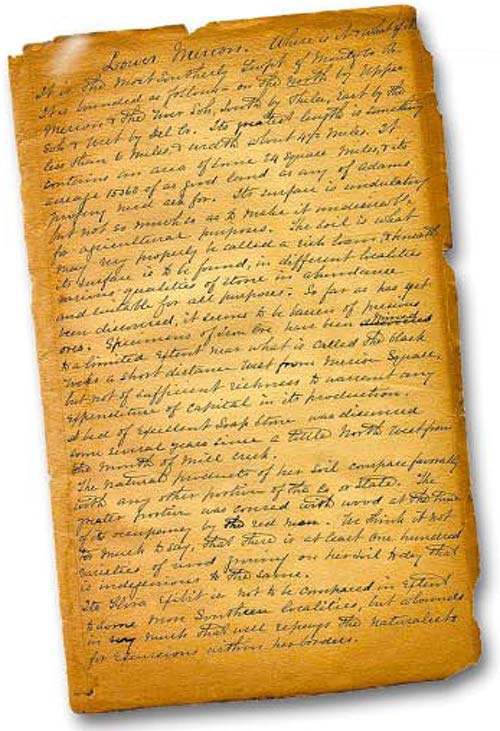 Lower Merion. Where is it & what of it
It is the most Southerly Townspt of Montg'y Co. It
It is bounded as follows on the North by Upper
Merion & the River Sch, South by Phila, East by the
Sch & West by Del Co. Its greatest length is something
less than 6 miles & width about 4 1/2 miles. It
contains an area of some 24 Square Miles, & its
acreage 15360 of as good land as any of Adams
progeny need ask for. Its surface is undulating
but not so much so as to make it undesirable
for agricultural purposes. The soil is what
may very properly be called a rich loam, & beneath
its surface is to be found, in different localities
various qualities of stone in abundance
and suitable for all purposes. So far as has yet
been discovered, it seems to be barren of precious
ores. Specimens of Iron Ore have been mined
to a limited Extent near what is called the black
rocks a short distance West from Merion Square,
but not of sufficient richness to warrant any
Expenditure of Capital in its production.
A bed of Excellent Soap Stone was discovered
some several years since a little North West from
the Mouth of Mill Creek.
The natural products of her Soil compare favorably
with any other portion of the Co or State. The
greater portion was covered with wood at the time
of its occupancy by the red man. We think it not
too much to say, that there is at least One hundred
varieties of wood growing on her soil to day that
is indigenious to the same.
Its Flora Exibit is not to be compared in Extent
to some more Southern localities, but abounds
in very much that will repay the naturalist
for Excursions within her borders.